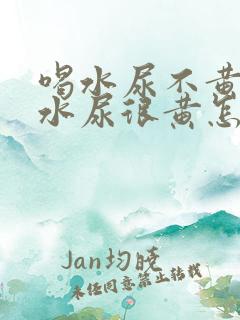 喝水尿不黄
水尿很黄怎
Jan均晓
未经同意禁止转载